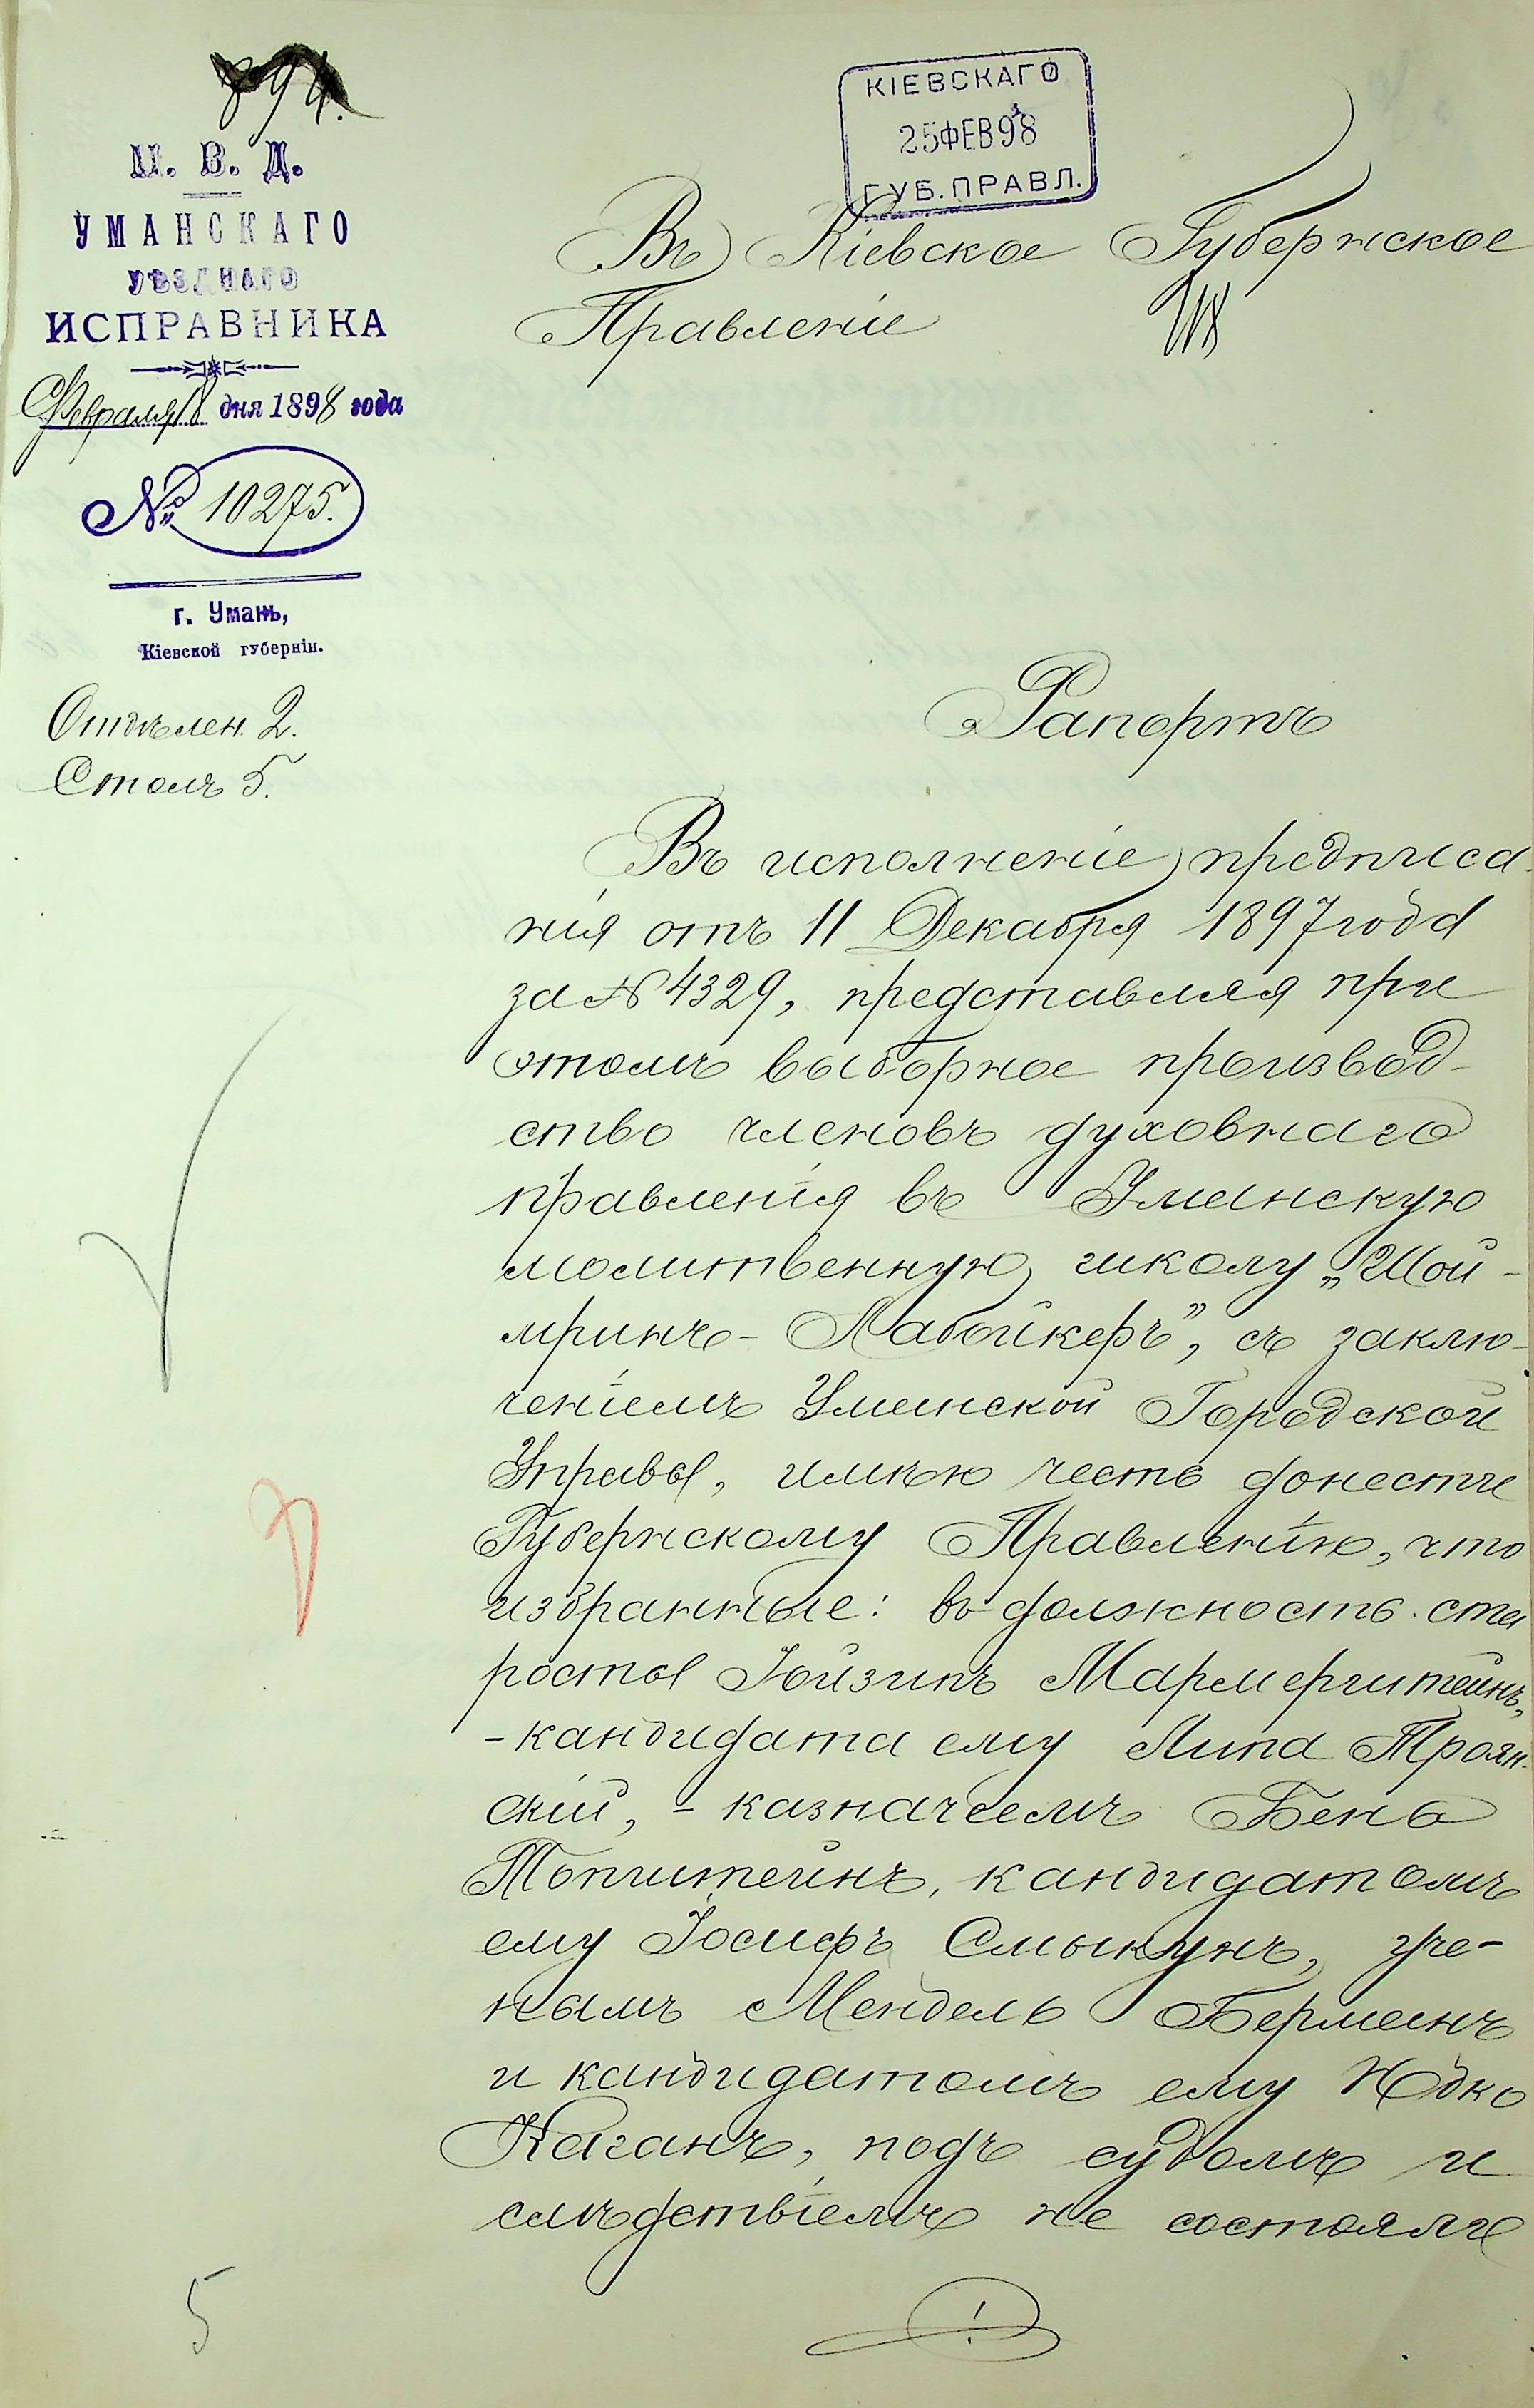 894.
М. В. Д.
УМАНСКАГО
УѢЗДНАГО
ИСПРАВНИКА
Февраля 18 дня 1898 года
№ 10275.
г. Умань,
Кіевской губерніи.
Отдѣлен. 2.
Столъ 5.
КІЕВСКАГО
25 ФЕВ 98
ГУБ. ПРАВЛ.
Въ Кіевское Губернское
Правленіе
Рапортъ
Въ исполненіе предписа-
нія отъ 11 Декабря 1897 года
за № 4329, представляя при
этомъ выборное производ-
ство членовъ духовнаго
правленія въ Уманскую
молитвенную школу „Шой-
мринъ-Лабойкеръ”, съ заклю-
ченіемъ Уманской Городской
Управы, имѣю честь донести
Губернскому Правленію, что
избранные: въ должность ста
росты Юйзипъ Мармерштейнъ,
-кандидата ему Липа Троян-
скій, - казначеемъ Бень
Топштейнъ, кандидатомъ
ему Іосифъ Смыкунъ, уче-
нымъ Мендель Берманъ
и кандидатомъ ему Юдко
Каганъ, подъ судомъ и
слѣдствіемъ не состояли
5